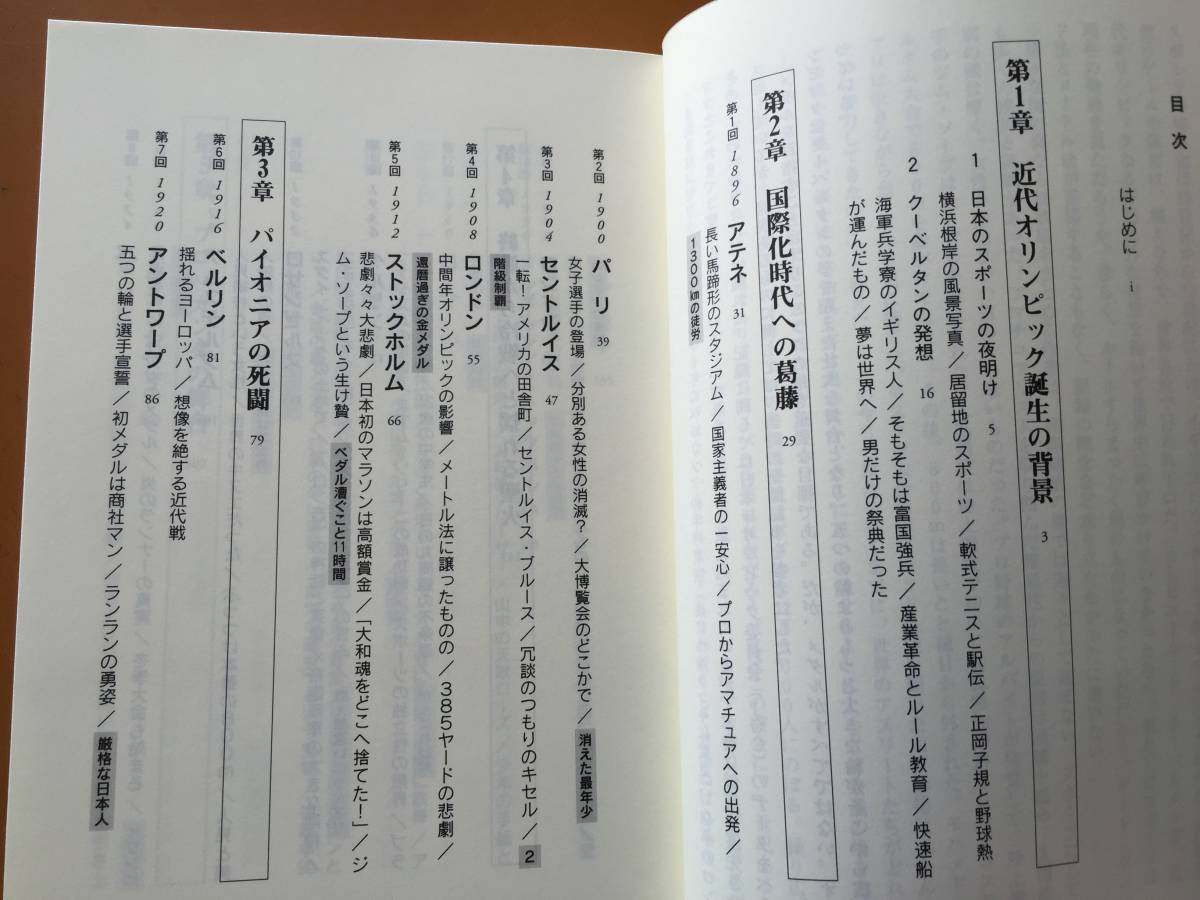 目次
はじめに i
第1章 近代オリンピック誕生の背景 3
1 日本のスポーツの夜明け 5
横浜根岸の風景写真／居留地のスポーツ／軟式テニスと駅伝／正岡子規と野球熱
2 クーベルタンの発想 16
海軍兵学寮のイギリス人／そもそもは富国強兵／産業革命とルール教育／快速船
が運んだもの／夢は世界へ／男だけの祭典だった
第2章 国際化時代への葛藤 29
第1回 1896 アテネ 31
長い馬蹄形のスタジアム／国家主義者の一安心／プロからアマチュアへの出発／
1300㎞の徒労
第2回 1900 パリ 39
女子選手の登場／分別ある女性の消滅？／大博覧会のどこかで／消えた最年少
第3回 1904 セントルイス 47
一転！アメリカの田舎町／セントルイス・ブルース／冗談のつもりのキセル／2
階級制覇
第4回 1908 ロンドン 55
中間年オリンピックの影響／メートル法に譲ったものの／385ヤードの悲劇／
還暦過ぎの金メダル
第5回 1912 ストックホルム 66
悲劇々々大悲劇／日本初のマラソンは高額賞金／「大和魂をどこへ捨てた！」／ジ
ム・ソープという生け贄／ペダル漕ぐこと11時間
第3章 パイオニアの死闘 79
第6回 1916 ベルリン 81
揺れるヨーロッパ／想像を絶する近代戦
第7回 1920 アントワープ 86
五つの輪と選手宣誓／初メダルは商社マン／ランランの勇姿／厳格な日本人